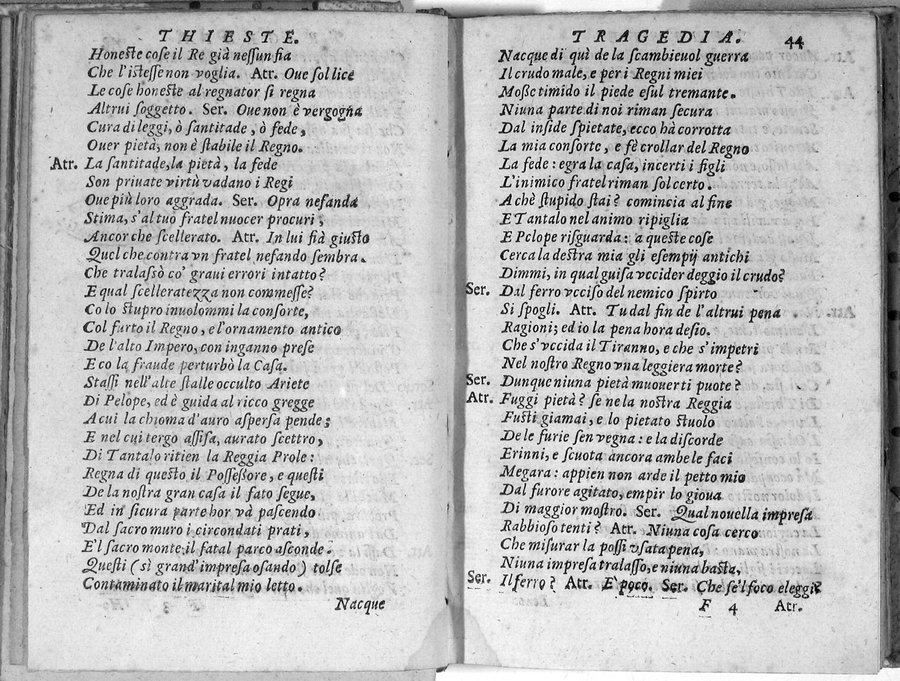 THIESTE.
Honeste cose il Re già nessun fia
Che l'istesse non voglia. Atr. Oue sol lice
Le cose honeste al regnator si regna
Altrui soggetto. Ser. Oue non è vergogna
Cura di leggi, ò santitade, ò fede,
Ouer pietà, non è stabile il Regno.
Atr. La santitade, la pietà, la fede
Son priuate virtù vadano i Regi
Oue più loro aggrada. Ser. Opra nefanda
Stima, s'al tuo fratel nuocer procuri;
Ancor che scellerato. Atr. In lui fià giusto
Quel che contra vn fratel nefando sembra.
Che tralassò co' graui errori intatto?
E qual scelleratezza non commesse?
Co lo stupro inuolommi la consorte,
Col furto il Regno, e l'ornamento antico
De l'alto Impero, con inganno prese
E co la fraude perturbò la Casa.
Stassi nell'alte stalle occulto Ariete
Di Pelope, ed è guida al ricco gregge
A cui la chioma d'auro aspersa pende;
E nel cui tergo assisa, aurato scettro,
Di Tantalo ritien la Reggia Prole:
Regna di questo il Possessore, e questi
De la nostra gran casa il fato segue,
Ed in sicura parte hor và pascendo
Dal sacro muro i circondati prati,
E'l sacro monte il fatal parco asconde.
Questi (sì grand'impresa osando) tolse
Contaminato il marital mio letto.
Nacque
TRAGEDIA. 44
Nacque di quì de la scambieuol guerra
Il crudo male, e per i Regni miei
Mosse timido il piede esul tremante.
Niuna parte di noi riman secura
Dal inside spietate, ecco hà corrotta
La mia consorte, e fè crollar del Regno
La fede: egra la casa, incerti i figli
L'inimico fratel riman sol certo.
A chè stupido stai? comincia al fine
E Tantalo nel animo ripiglia
E Pelope risguarda: a queste cose
Cerca la destra mia gli esempij antichi
Dimmi, in qual guisa vccider deggio il crudo?
Ser. Dal ferro vcciso del nemico spirto
Si spogli. Atr. Tu dal fin de l'altrui pena
Ragioni; ed io la pena hora desio.
Che s'vccida il Tiranno, e che s'impetri
Nel nostro Regno vna leggiera morte?
Ser. Dunque niuna pietà muouerti puote?
Atr. Fuggi pietà? se ne la nostra Reggia
Fusti giamai, e lo pietato stuolo
De le furie sen vegna: e la discorde
Erinni, e scuota ancora ambe le faci
Megara: appien non arde il petto mio
Dal furore agitato, empir lo gioua
Di maggior mostro. Ser. Qual nouella impresa
Rabbioso tenti? Atr. Niuna cosa cerco
Che misurar la possi vsata pena,
Niuna impresa tralasso, e niuna basta,
Ser. Il ferro? Atr. E poco. Ser. Che se'l foco eleggi?
F 4 Atr.